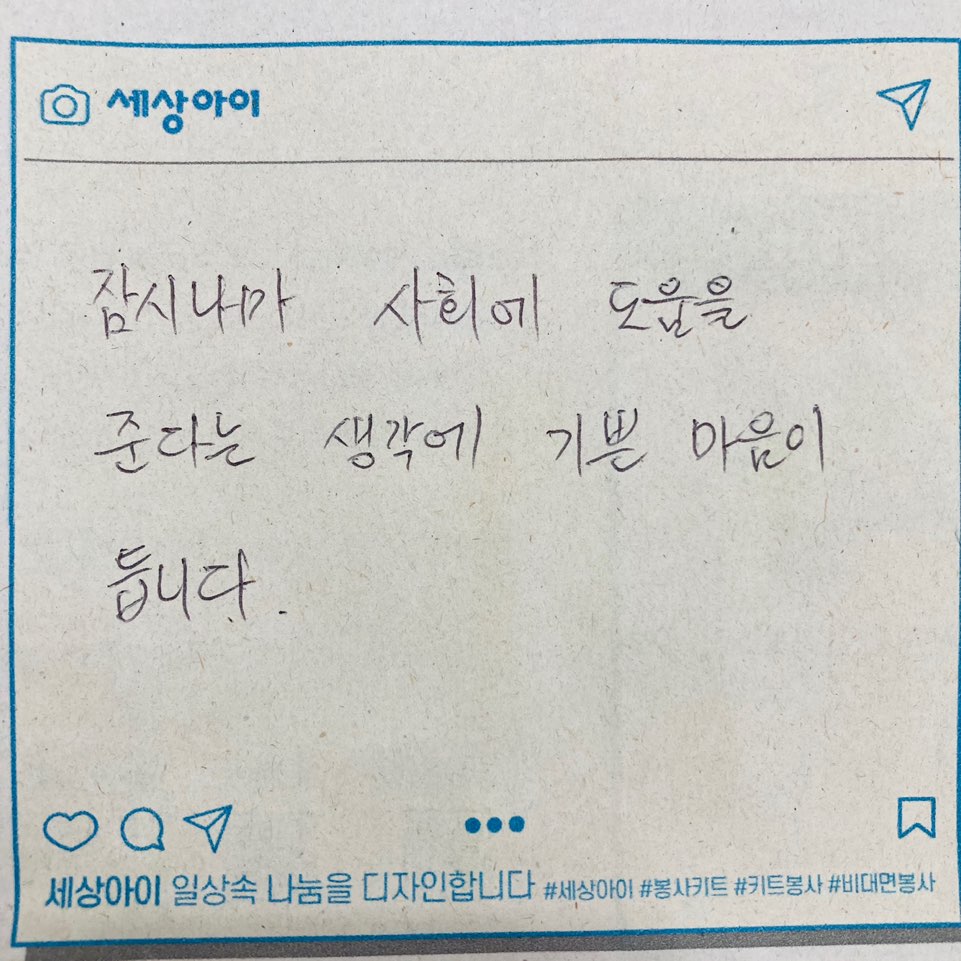 세상아이
잠시나마 사회에 도움을
준다는 생각에 기쁜 마음이
듭니다.
세상아이 일상속 나눔을 디자인합니다 #세상아이 #봉사키트 #키트봉사 #비대면봉사